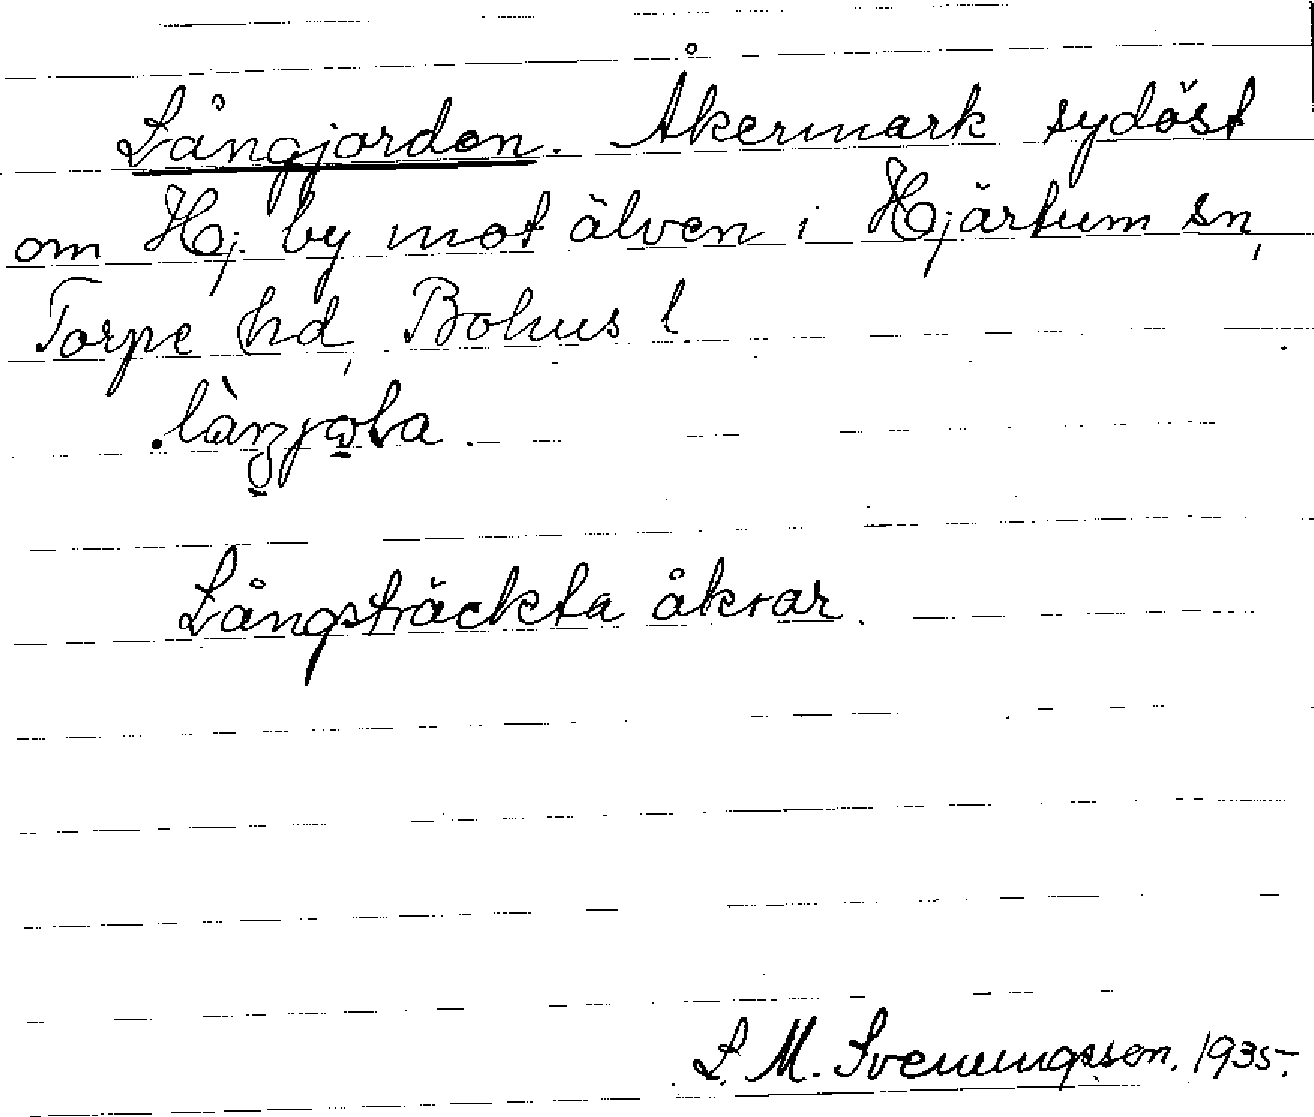 Långjorden. Åkermark sydöst
om Hj. by mot älven i Hjärtum sn,
Torpe hd, Bohus l
Långsträckta åkrar.
L. M. Svenungsson. 1935.